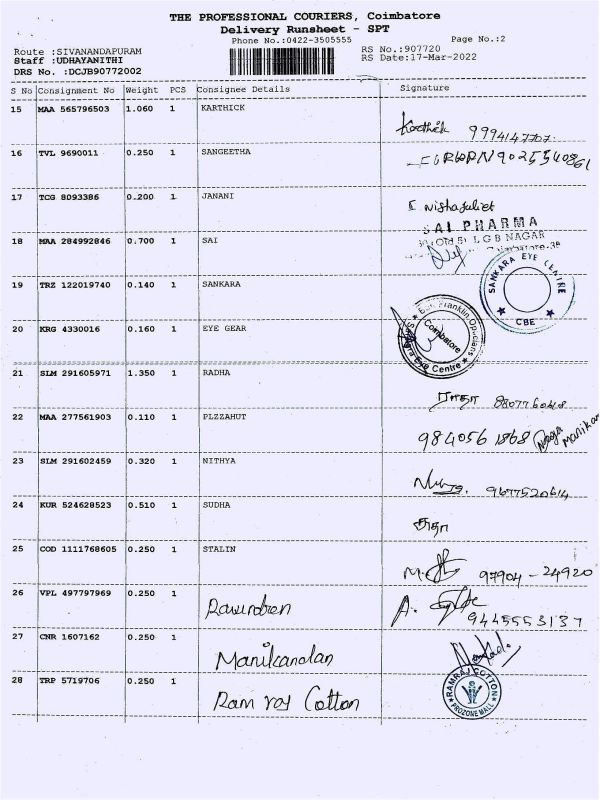 THE PROFESSIONAL COURIERS, Coimbatore
Delivery Runsheet - SPT
Phone No.:0422-3505555
Page No.:2
Route :SIVANANDAPURAM
RS No.:907720
Staff :UDHAYANITHI
RS Date:17-Mar-2022
DRS No. :DCJB90772002
S No Consignment No Weight PCS Consignee Details Signature
15 MAA 565796503 1.060 1 KARTHICK
Karthik 9994147707
16 TVL 9690011 0.250 1 SANGEETHA
17 TCG 8093386 0.200 1 JANANI
Nishajuliet
SAI PHARMA
L G B NAGAR
18 MAA 284992846 0.700 1 SAI
19 TRZ 122019740 0.140 1 SANKARA
SANKARA EYE CENTRE
CBE
20 KRG 4330016 0.160 1 EYE GEAR
Ben Franklin Opticians
Coimbatore
Sankara Eye Centre
21 SLM 291605971 1.350 1 RADHA
ராதா
22 MAA 277561903 0.110 1 PLZZAHUT
9840561868 Naga Manikan
23 SLM 291602459 0.320 1 NITHYA
9677520614
24 KUR 524628523 0.510 1 SUDHA
சுதா
25 COD 1111768605 0.250 1 STALIN
97904 - 24920
26 VPL 497797969 0.250 1 Ravindren
9445553137
27 CNR 1607162 0.250 1 Manikandan
28 TRP 5719706 0.250 1 Ram raj Cotton
RAMRAJ COTTON
PROZONE MALL